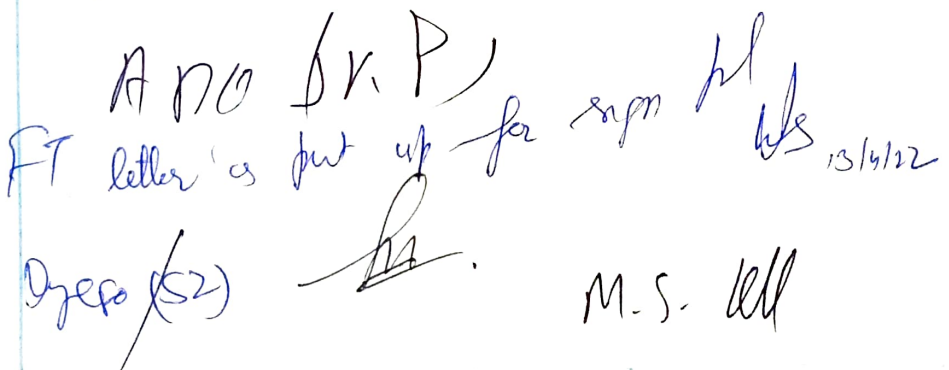 ADO (V.P)
FT letter is put up for sign pl
13/4/22
Dy CPO (S2)
M.S. Cell